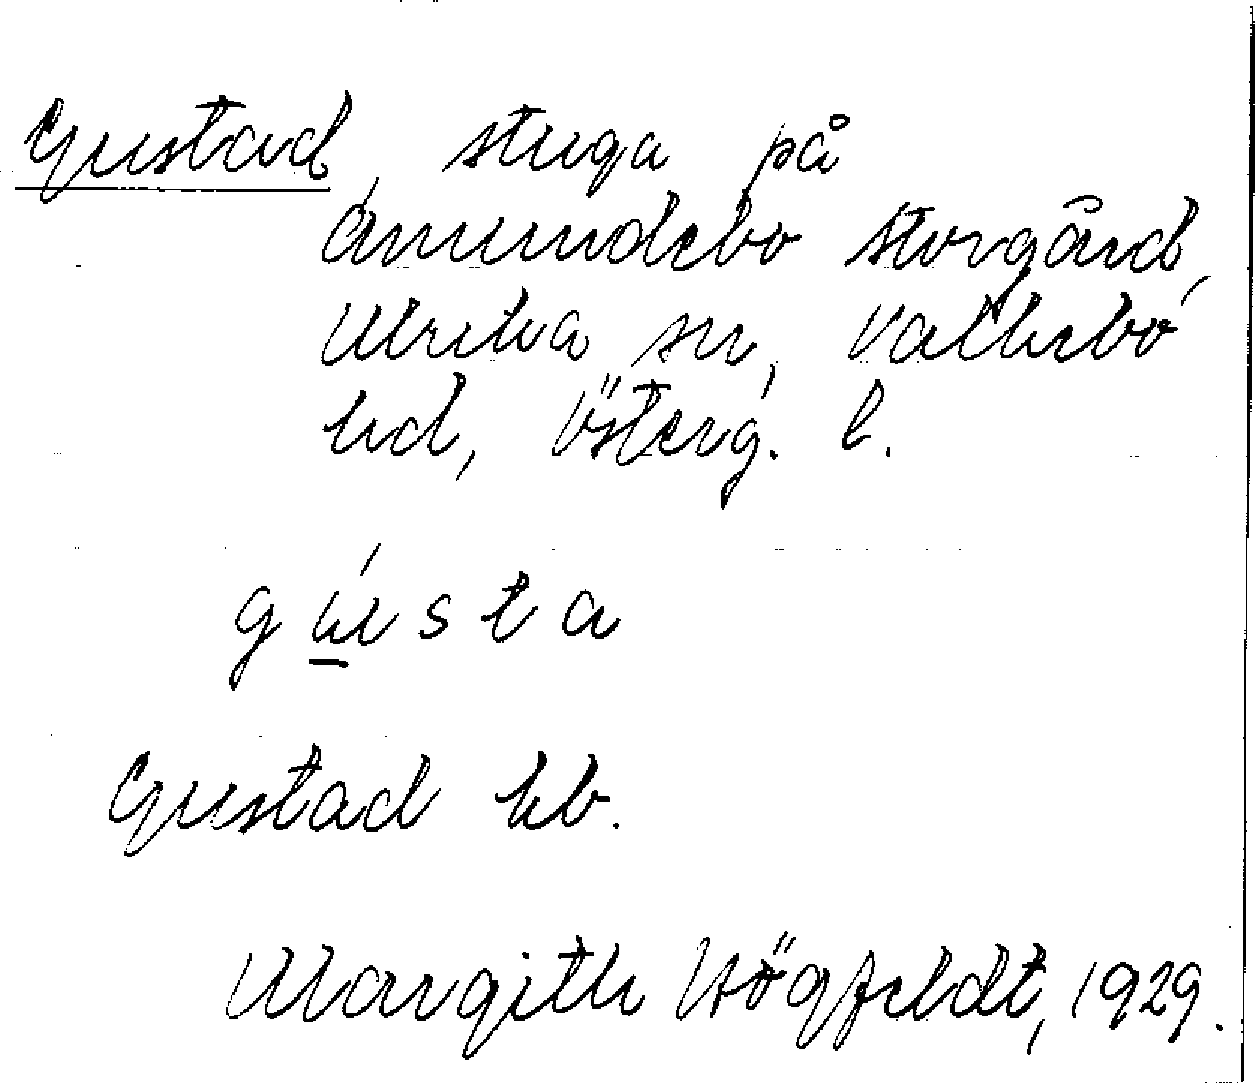 Gustad, stuga på
Amundebo storgård,
Ulrika sn, Valkebo
hd, Österg. l.
gústa
Gustad kb.
Margith Högfeldt, 1929.